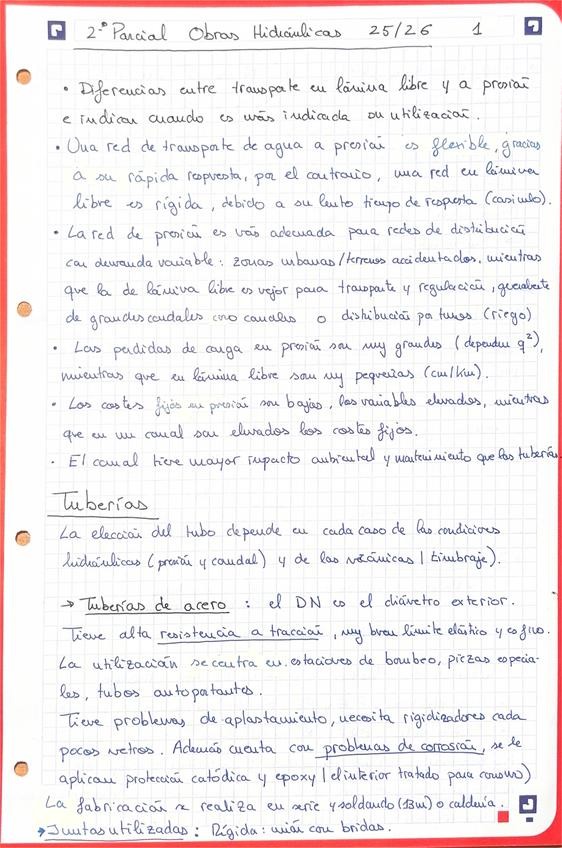 2º Parcial Obras Hidráulicas 25/26 1
• Diferencias entre transporte en lámina libre y a presión
e indicar cuando es más indicada su utilización.
• Una red de transporte de agua a presión es flexible, gracias
a su rápida respuesta, por el contrario, una red en lámina
libre es rígida, debido a su lento tiempo de respuesta (casi nulo).
• La red de presión es más adecuada para redes de distribución
con demanda variable: zonas urbanas/terrenos accidentados, mientras
que la de lámina libre es mejor para transporte y regulación, generalmente
de grandes caudales como canales o distribución por turnos (riego)
• Las perdidas de carga en presión son muy grandes (dependen q²),
mientras que en lámina libre son muy pequeñas (cm/km).
• Los costes fijos en presión son bajos, los variables elevados, mientras
que en un canal son elevados los costes fijos.
• El canal tiene mayor impacto ambiental y mantenimiento que las tuberías.
Tuberías
La elección del tubo depende en cada caso de las condiciones
hidráulicas (presión y caudal) y de las mecánicas (timbraje).
→ Tuberías de acero : el DN es el diámetro exterior.
Tiene alta resistencia a tracción, muy buen límite elástico y es fino.
La utilización se centra en estaciones de bombeo, piezas especia-
les, tubos autoportantes.
Tiene problemas de aplastamiento, necesita rigidizadores cada
pocos metros. Además cuenta con problemas de corrosión, se le
aplican protección catódica y epoxy (el interior tratado para consumo)
La fabricación se realiza en serie y soldando (13m) o calderería.
→ Juntas utilizadas : Rígida : unión con bridas.